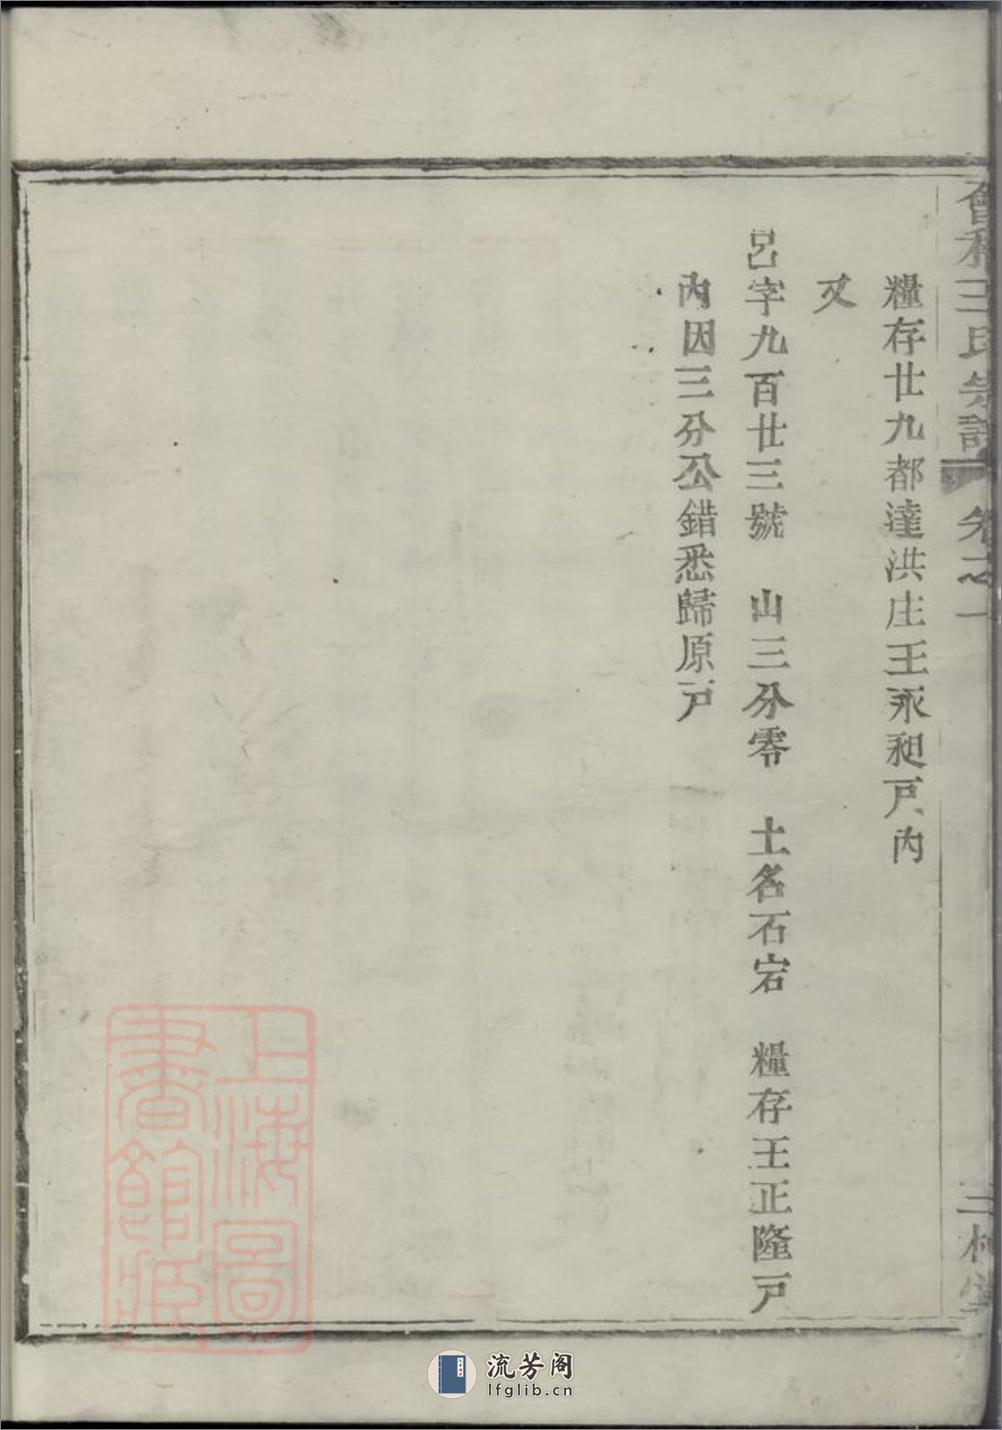 會稽王氏宗譜 卷之一 三槐堂
糧存廿九都達洪庄王永昶戸內
又
呂字九百廿三號 山三分零 土名石宕 糧存王正隆戸
內因三分公錯悉歸原戸
上海圖書館藏
流芳阁
lfglib.cn